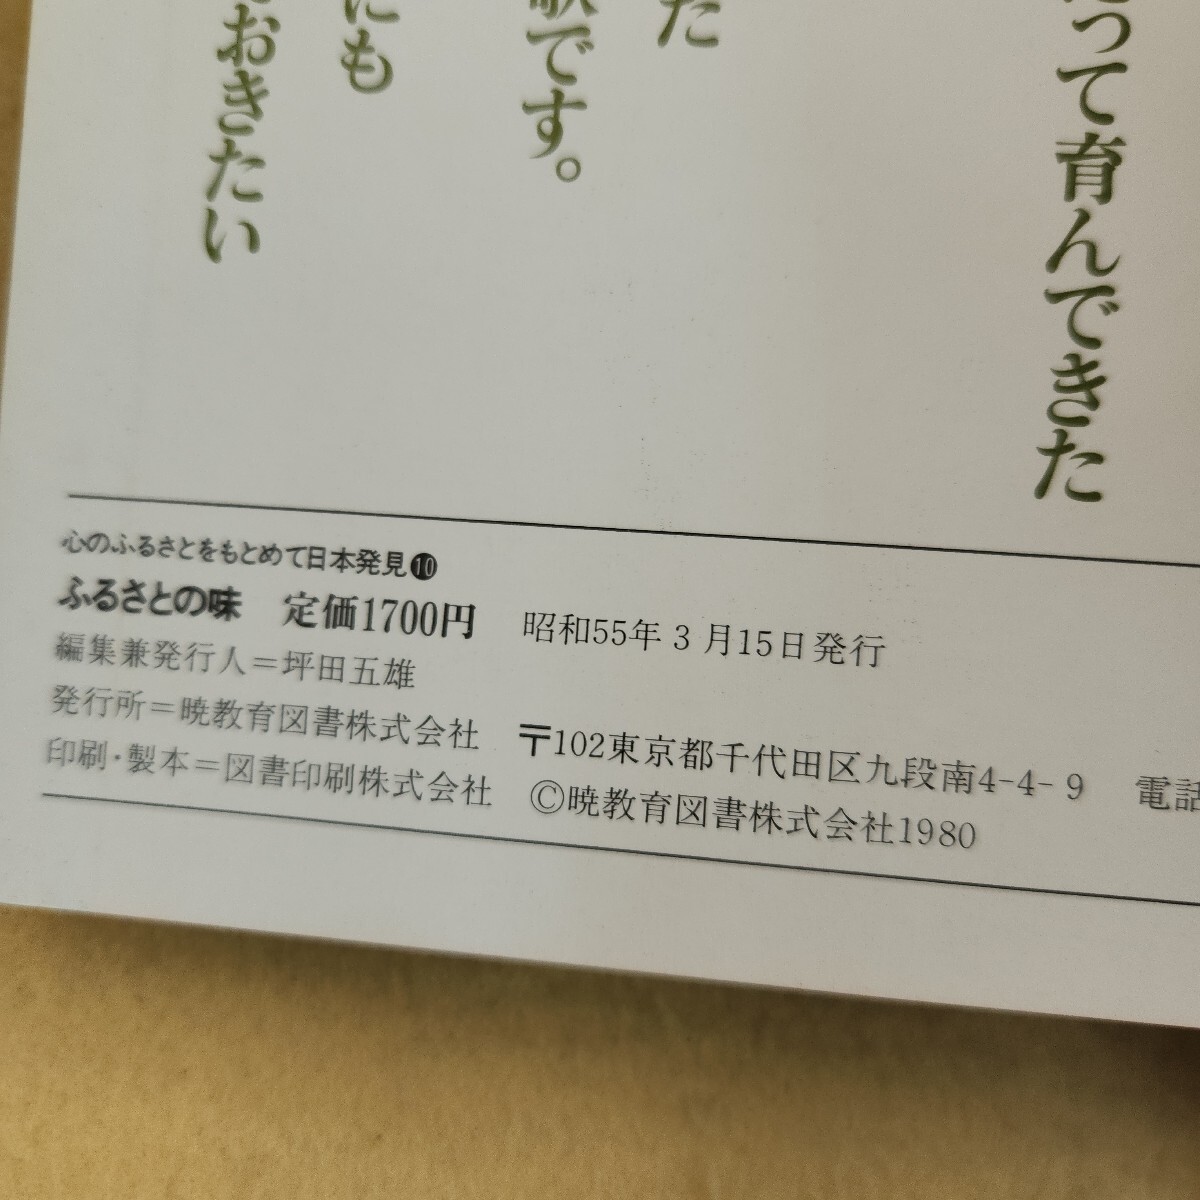 って育んできた
た
です。
にも
おきたい
心のふるさとをもとめて日本発見❿
ふるさとの味 定価1700円 昭和55年3月15日発行
編集兼発行人＝坪田五雄
発行所＝暁教育図書株式会社 〒102東京都千代田区九段南4-4-9 電話
印刷・製本＝図書印刷株式会社 ©暁教育図書株式会社1980